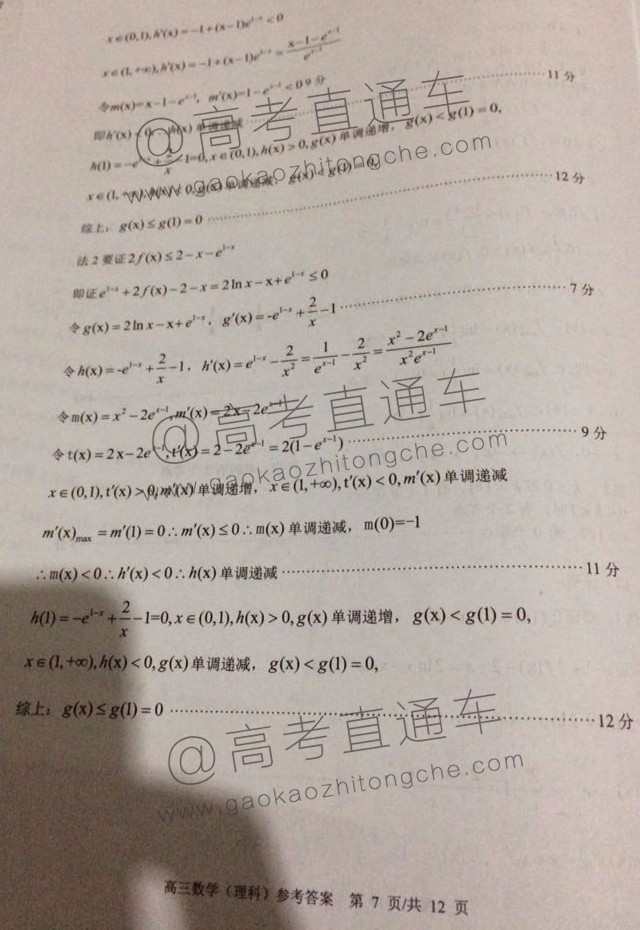 x∈(0,1), h′(x) = −1+(x−1)e^{1−x} < 0
x∈(1,+∞), h′(x) = −1+(x−1)e^{1−x} = \frac{x−1−e^{x−1}}{e^{x−1}}
令m(x)=x−1−e^{x−1}, m′(x)=1−e^{x−1}<0 9分
即h′(x)<0 ∴h(x)单调递减 ⋯⋯ 11 分
@高考直通车
h(1)=−e^{1−x}+\frac{2}{x}−1=0, x∈(0,1), h(x)>0, g(x)单调递增, g(x)<g(1)=0,
www.gaokaozhitongche.com
x∈(1,+∞), h(x)<0, g(x)单调递减, g(x)<g(1)=0,
综上: g(x)≤g(1)=0 ⋯⋯ 12 分
法 2 要证2f(x)≤2−x−e^{1−x}
即证e^{1−x}+2f(x)−2−x=2ln x−x+e^{1−x}≤0
令g(x)=2ln x−x+e^{1−x}, g′(x)=-e^{1−x}+\frac{2}{x}−1 ⋯⋯ 7 分
令h(x)=-e^{1−x}+\frac{2}{x}−1, h′(x)=e^{1−x}−\frac{2}{x²}=\frac{1}{e^{x−1}}−\frac{2}{x²}=\frac{x²−2e^{x−1}}{x²e^{x−1}}
令m(x)=x²−2e^{x−1}, m′(x)=2x−2e^{x−1}
@高考直通车
令t(x)=2x−2e^{x−1}, t′(x)=2−2e^{x−1}=2(1−e^{x−1}) ⋯⋯ 9 分
www.gaokaozhitongche.com
x∈(0,1), t′(x)>0, m′(x)单调递增, x∈(1,+∞), t′(x)<0, m′(x)单调递减
m′(x)_{max}=m′(1)=0∴m′(x)≤0∴m(x)单调递减, m(0)=−1
∴m(x)<0∴h′(x)<0∴h(x)单调递减 ⋯⋯ 11 分
h(1)=−e^{1−x}+\frac{2}{x}−1=0, x∈(0,1), h(x)>0, g(x)单调递增, g(x)<g(1)=0,
x∈(1,+∞), h(x)<0, g(x)单调递减, g(x)<g(1)=0,
综上: g(x)≤g(1)=0 ⋯⋯ 12 分
@高考直通车
www.gaokaozhitongche.com
高三数学（理科）参考答案 第 7 页/共 12 页